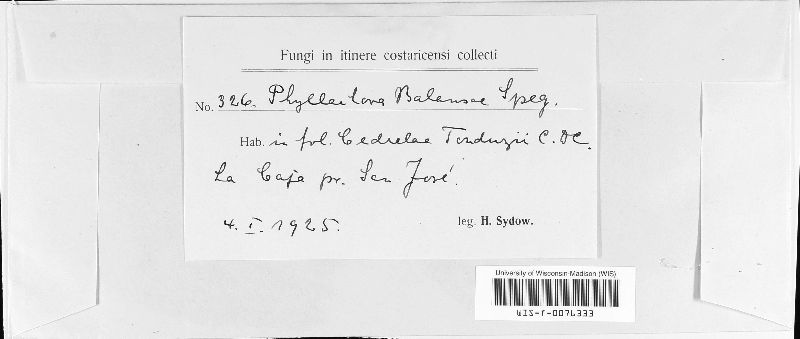 Fungi in itinere costaricensi collecti
No. 326. Phyllachora Balansae Speg.
Hab. in fol. Cedrelae Tonduzii C. DC.
La Caja pr. San José.
4. I. 1925.
leg. H. Sydow.
University of Wisconsin-Madison (WIS)
WIS-f-0076333